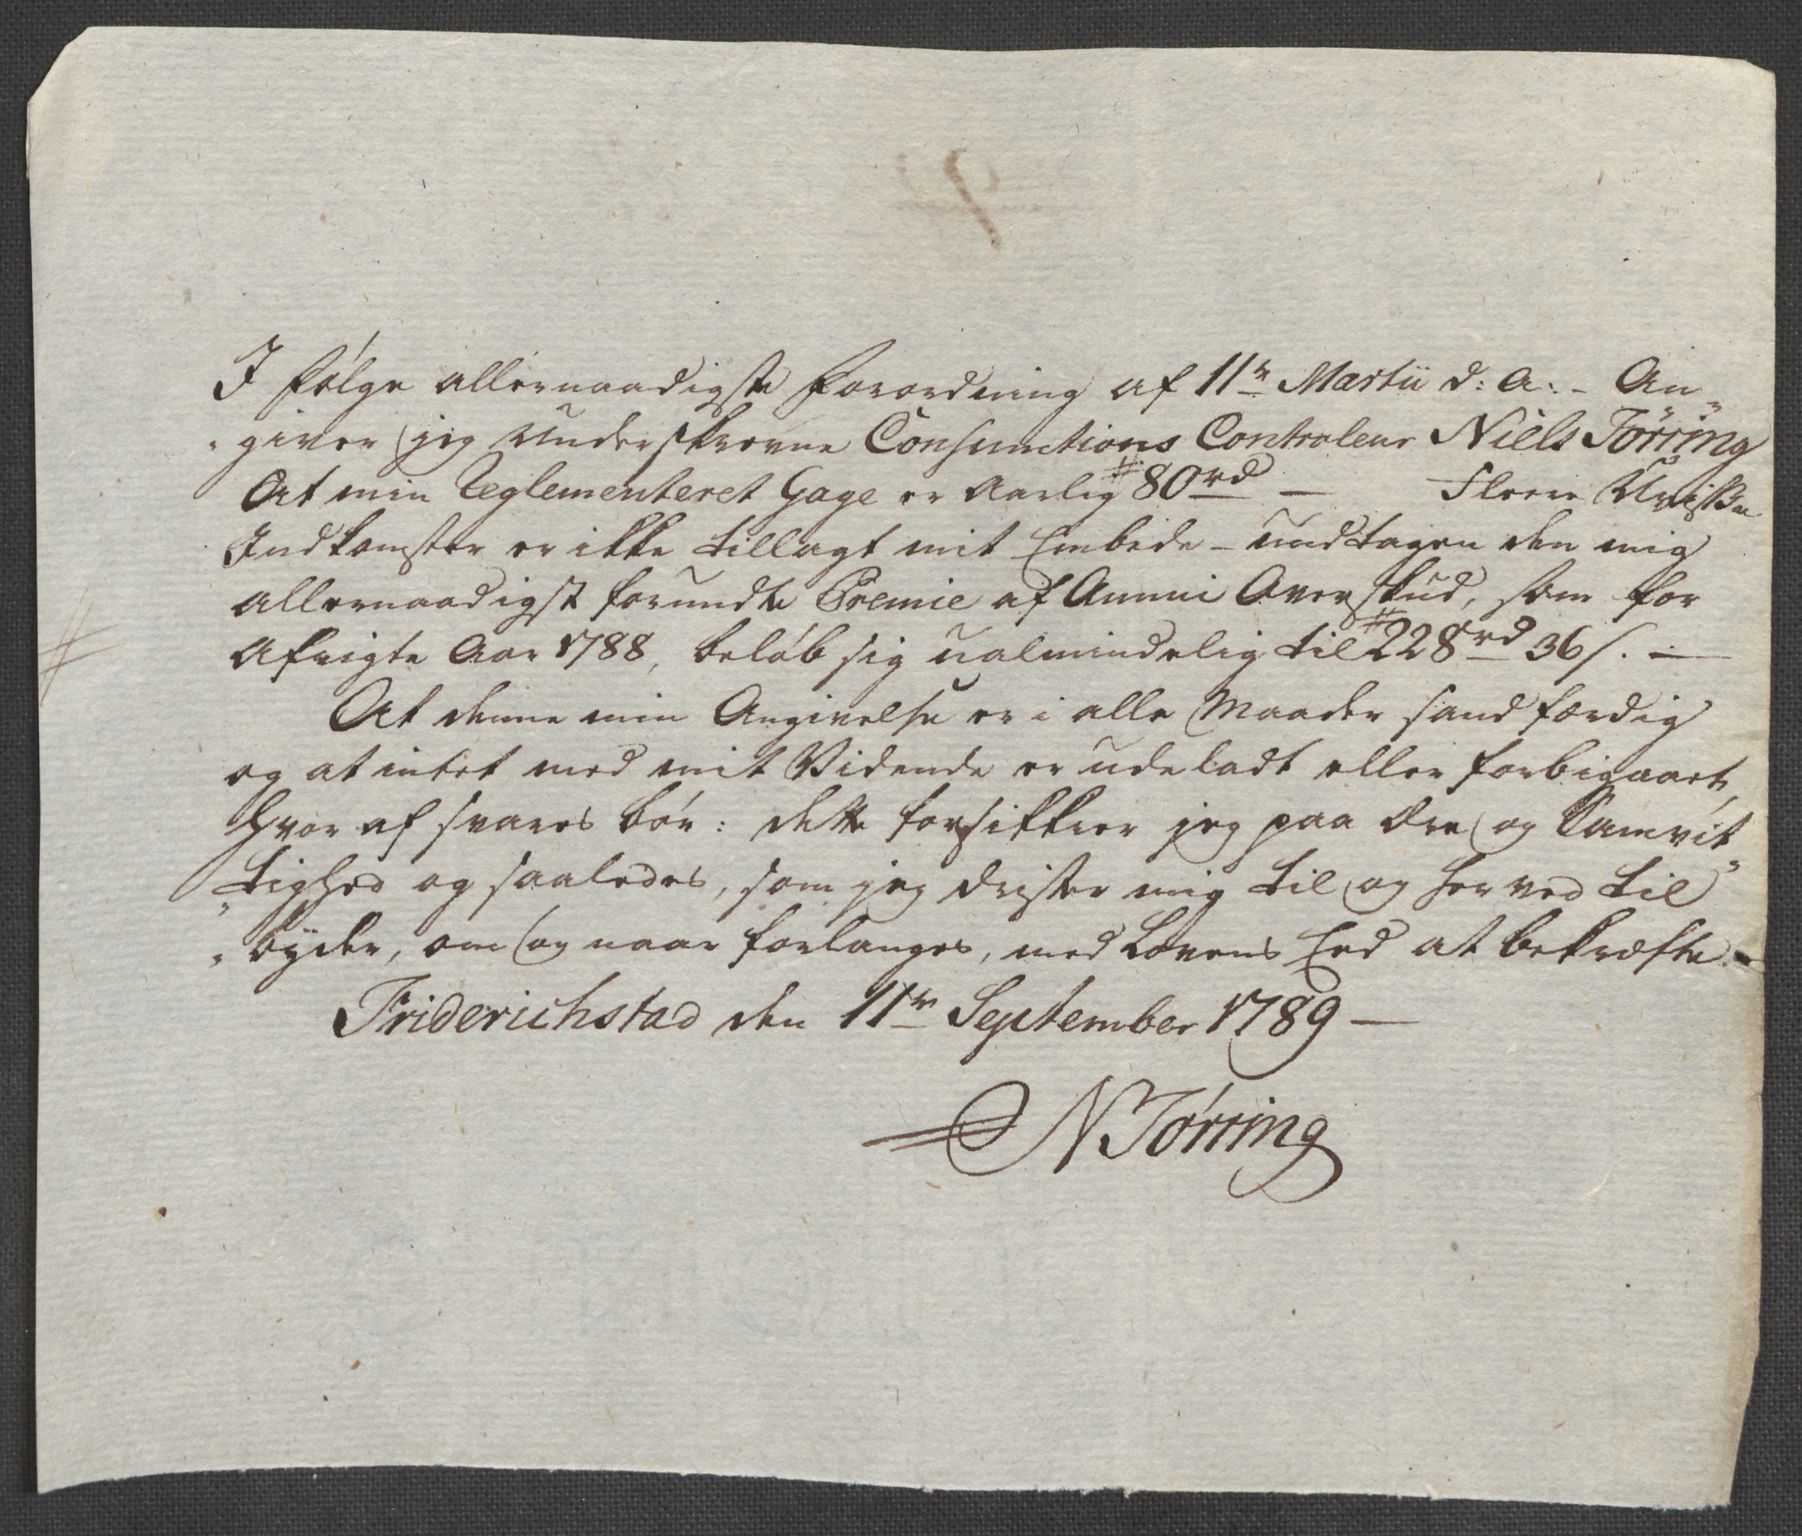 I følge allernaadigste Forordning af 11te Martii d: A: - An„
„giver jeg Underskrevne Consumtions Controleur Niels Törring
At min Reglementeret Gage er Aarlig # 80rd — Fleere Uvisse
Indkomster er ikke tillagt mit Embede - undtagen den mig
allernaadigst forundte Premie af Annui Overskud, som for
Afvigte Aar 1788, beløb sig ualmindelig til # 228rd 36 s. —
At denne min Angivelse er i alle Maader sandfærdig
og at intet med mit Vidende er udeladt eller forbigaaet,
hvor af svares bør: dette forsikkrer jeg paa Ære og Samvit„
„tighed og saaledes, som jeg drister mig til og herved til„
„byder, om og naar forlanges, med Lovens Eed at bekræfte.
Friderichstad den 11te September 1789 —
N Törring